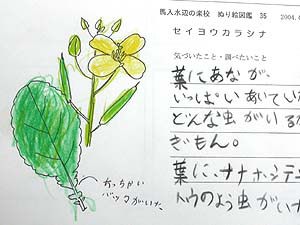 馬入水辺の楽校 ぬり絵図鑑 35
2004.
セイヨウカラシナ
気づいたこと・調べたいこと
葉にあなが、
いっぱいあいてい
どんな虫がいるか
ぎもん。
葉に、ナナホシテン
トウのよう虫がい
ちっちゃい
バッタがいた。